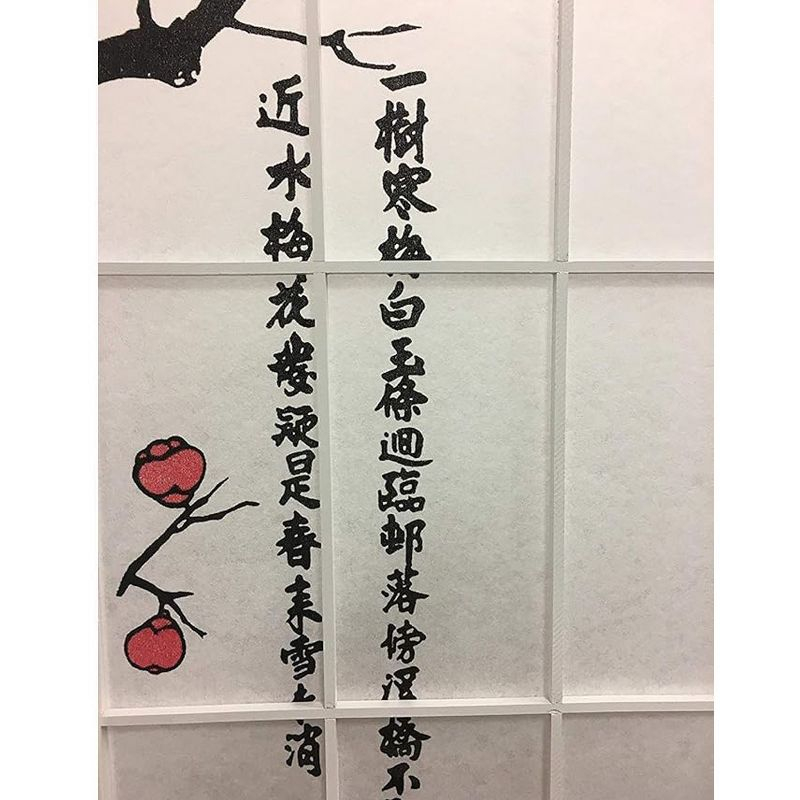 一樹寒梅白玉條迴臨邨落傍溪橋不
近水梅花發疑是春来雪未消